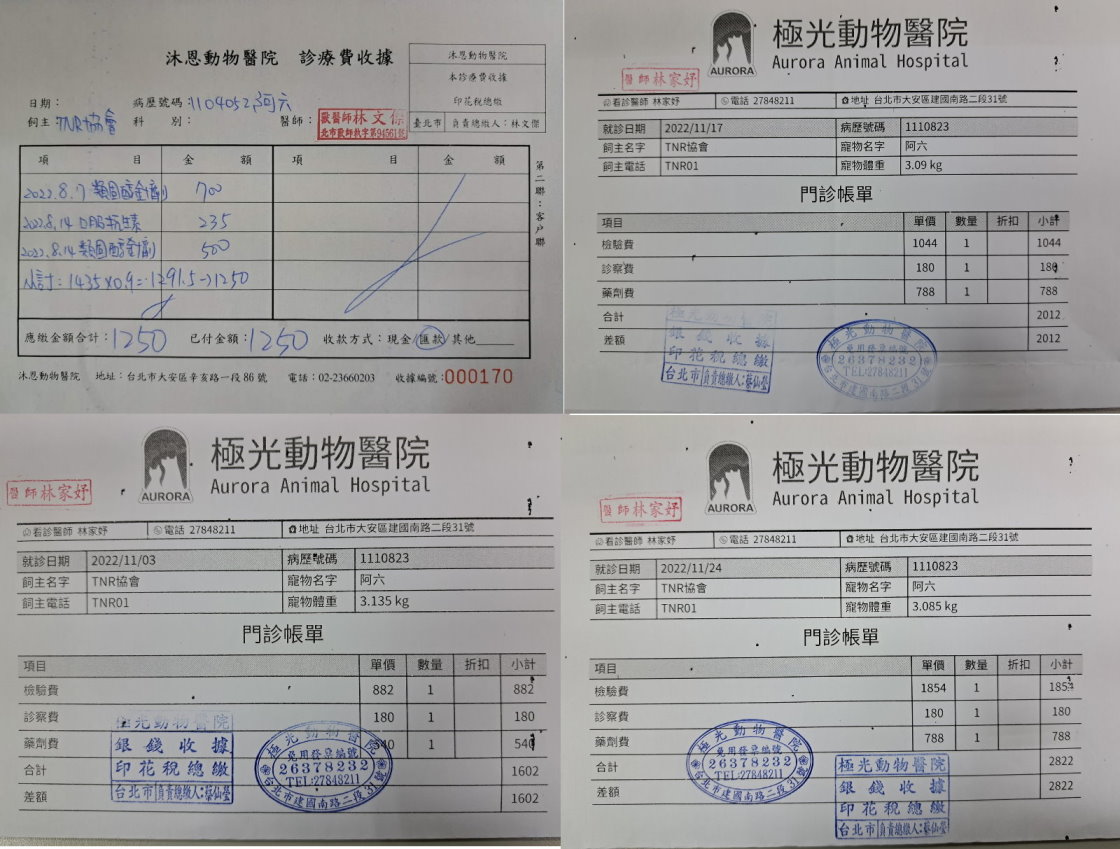 沐恩動物醫院 診療費收據
沐恩動物醫院
本診療費收據
印花稅總繳
臺北市 負責總繳人：林文傑
日期： 病歷號碼：1104052 阿六
飼主：TNR協會 科 別： 醫師：
獸醫師林文傑
項 目 金 額 項 目 金 額
2022.8.7 類固醇金劑 700
2022.8.14 口服抗生素 235
2022.8.14 類固醇金劑 500
小計：1435x0.9=1291.5→1250
應繳金額合計：1250 已付金額：1250 收款方式：現金/匯款/其他
第二聯：客戶聯
沐恩動物醫院 地址：台北市大安區辛亥路一段86號 電話：02-23660203 收據編號：000170
AURORA
極光動物醫院
Aurora Animal Hospital
醫師林家妤
看診醫師 林家妤 電話 27848211 地址 台北市大安區建國南路二段31號
就診日期 2022/11/17 病歷號碼 1110823
飼主名字 TNR協會 寵物名字 阿六
飼主電話 TNR01 寵物體重 3.09 kg
門診帳單
項目 單價 數量 折扣 小計
檢驗費 1044 1 1044
診察費 180 1 180
藥劑費 788 1 788
合計 2012
差額 2012
銀錢收據
印花稅總繳
台北市 負責總繳人:蔡仙瑩
極光動物醫院
免用發票編號
26378232
TEL:27848211
台北市建國南路二段31號
AURORA
極光動物醫院
Aurora Animal Hospital
醫師林家妤
看診醫師 林家妤 電話 27848211 地址 台北市大安區建國南路二段31號
就診日期 2022/11/03 病歷號碼 1110823
飼主名字 TNR協會 寵物名字 阿六
飼主電話 TNR01 寵物體重 3.135 kg
門診帳單
項目 單價 數量 折扣 小計
檢驗費 882 1 882
診察費 180 1 180
藥劑費 540 1 540
合計 1602
差額 1602
極光動物醫院
銀錢收據
印花稅總繳
台北市 負責總繳人:蔡仙瑩
極光動物醫院
免用發票編號
26378232
TEL:27848211
台北市建國南路二段31號
AURORA
極光動物醫院
Aurora Animal Hospital
醫師林家妤
看診醫師 林家妤 電話 27848211 地址 台北市大安區建國南路二段31號
就診日期 2022/11/24 病歷號碼 1110823
飼主名字 TNR協會 寵物名字 阿六
飼主電話 TNR01 寵物體重 3.085 kg
門診帳單
項目 單價 數量 折扣 小計
檢驗費 1854 1 1854
診察費 180 1 180
藥劑費 788 1 788
合計 2822
差額 2822
極光動物醫院
免用發票編號
26378232
TEL:27848211
台北市建國南路二段31號
極光動物醫院
銀錢收據
印花稅總繳
台北市 負責總繳人:蔡仙瑩